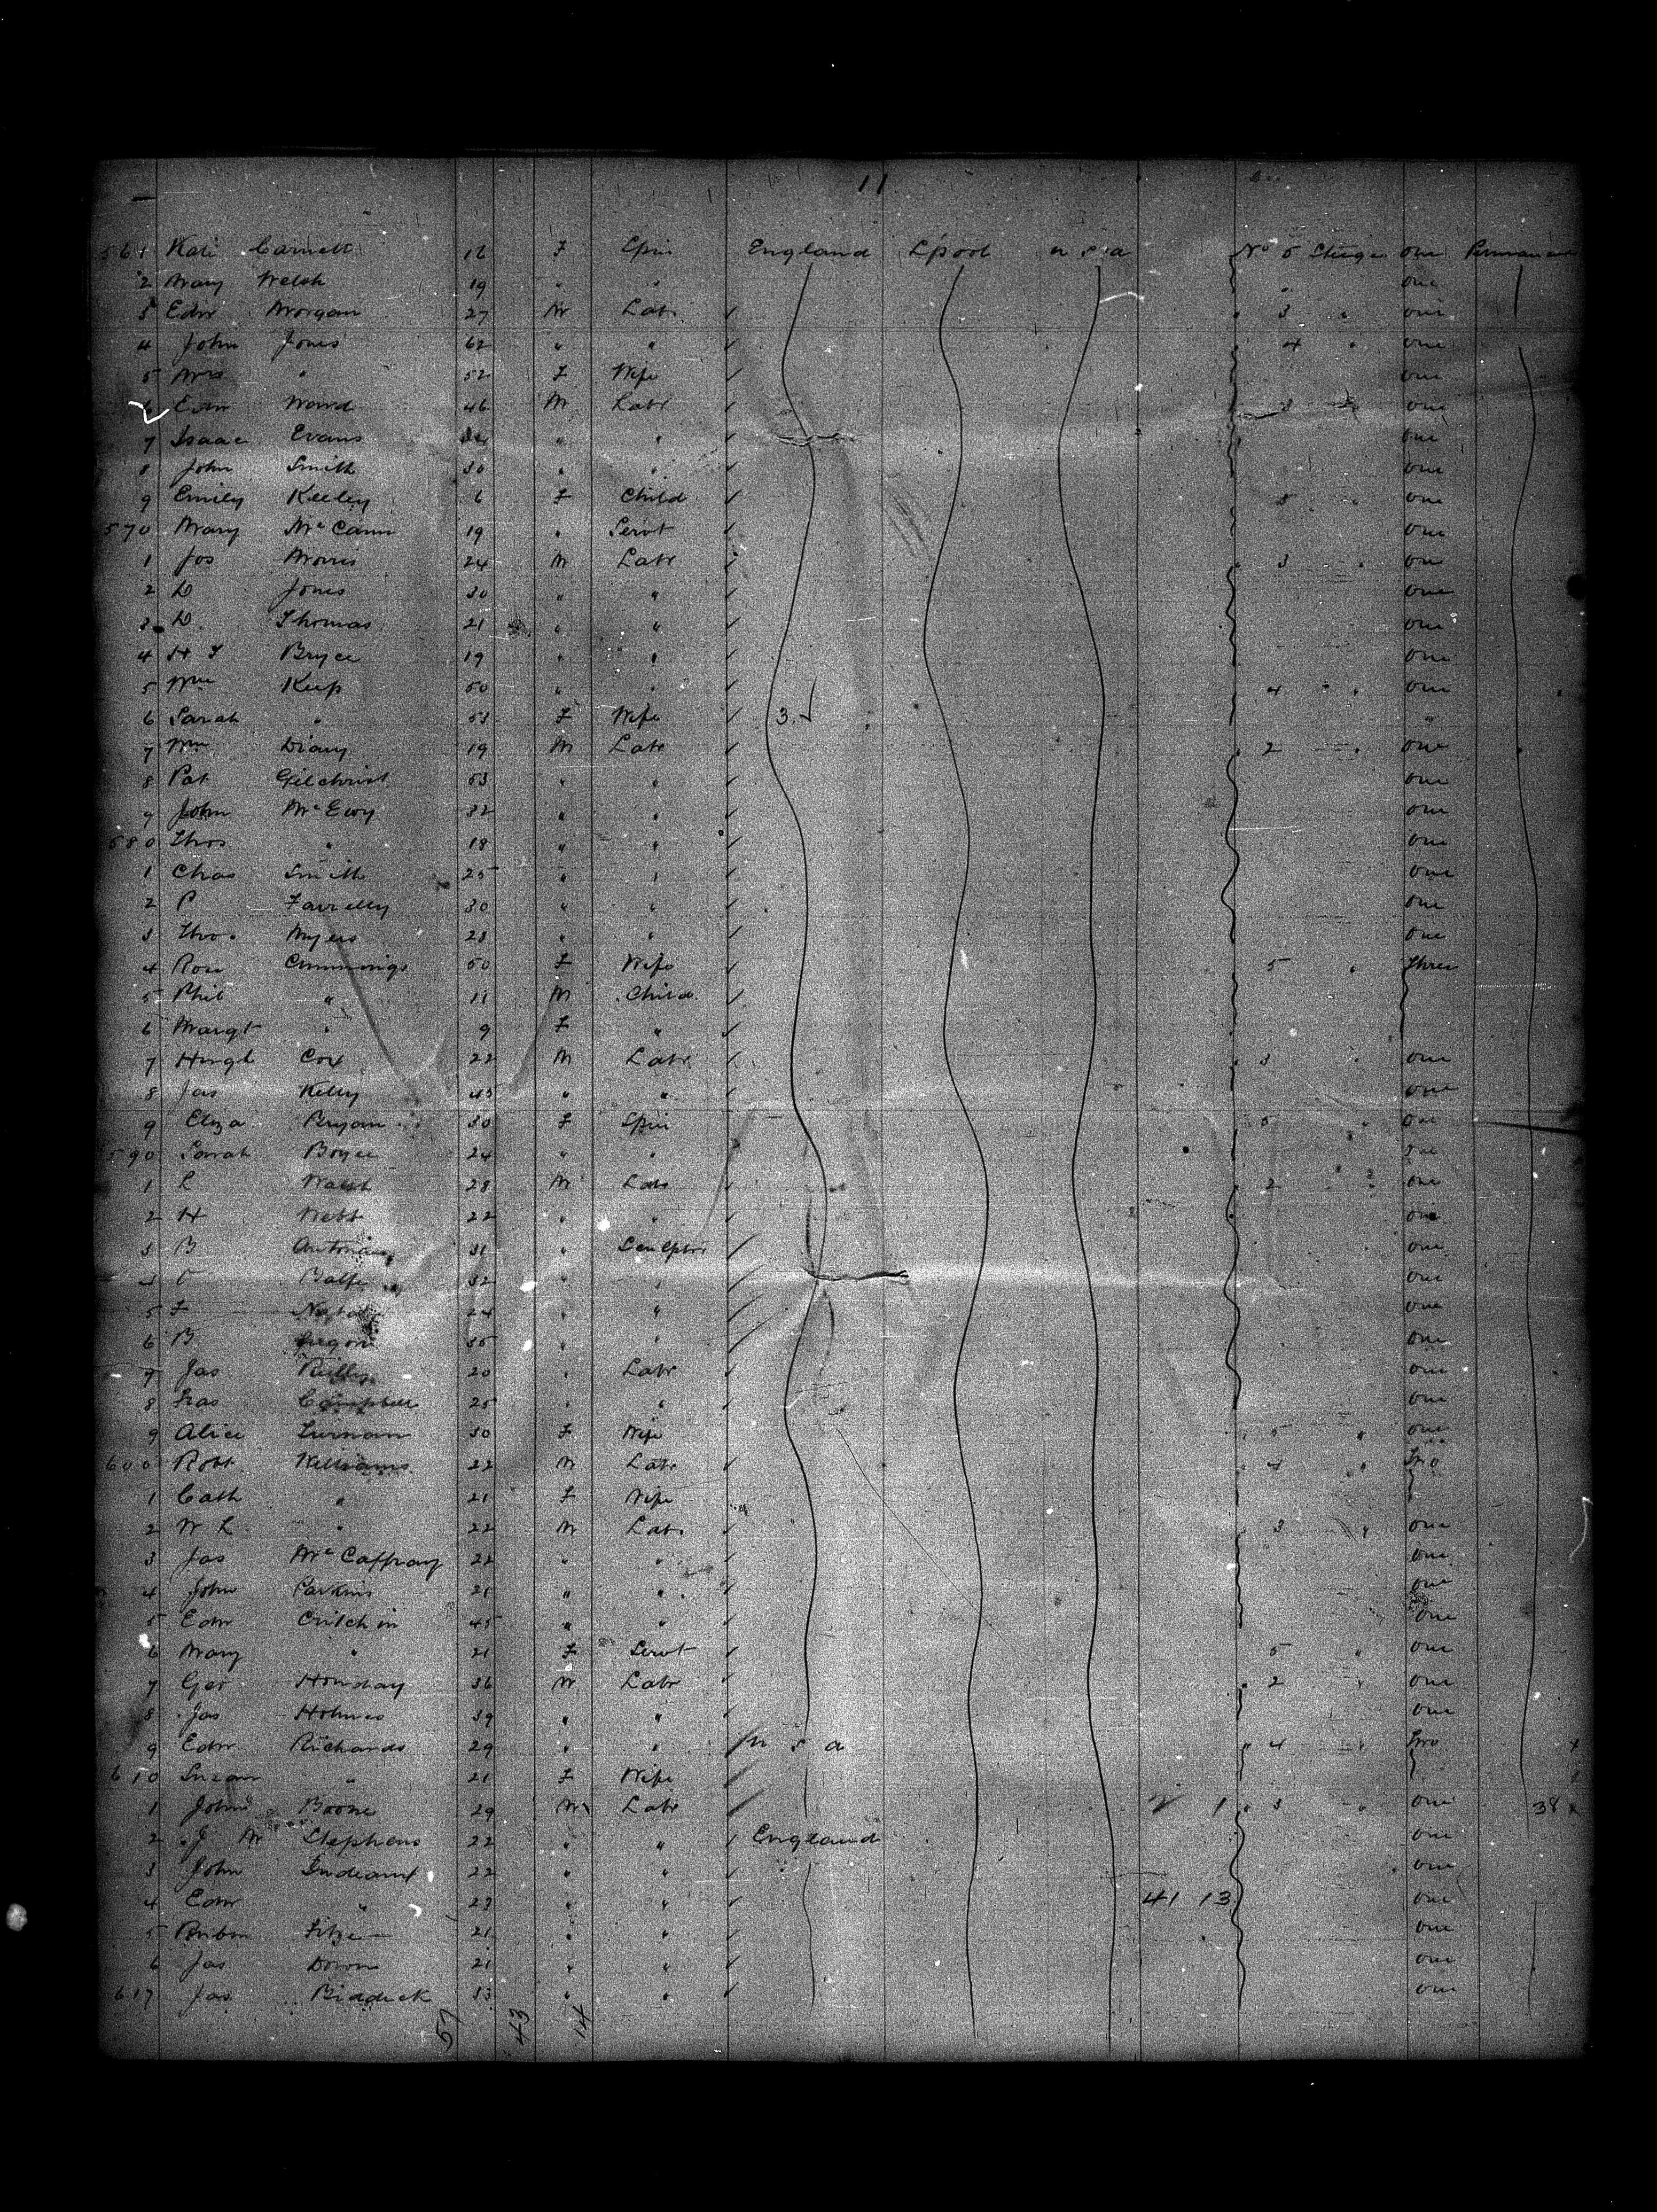 11
561 Kate Carnett 16 F Spin England Lpool U S a No 5 Steerge One Permanent
2 Mary Welsh 19 " " " one
3 Edw Morgan 27 M Labr " 3 " one
4 John Jones 62 " " 4 " one
5 Mrs " 52 F Wife one
6 Edw Ward 46 M Labr 3 one
7 Isaac Evans " " one
8 John Smith 30 " " one
9 Emily Keeley 6 F Child 5 " one
570 Mary McCann 19 " Servt one
1 Jos Morris 24 M Labr " 3 " one
2 D Jones 30 " " one
3 D. Thomas 21 " " one
4 H J Bryce 19 " " one
5 Wm Keep 50 " " 4 " " one
6 Sarah " 53 F Wife 3 "
7 Wm Diany 19 M Labr " 2 " one
8 Pat Gilchrist 53 " " one
9 John McEvoy 32 " " one
580 Thos " 18 " " one
1 Chas Smith 25 " " one
2 P Farrelly 30 " " one
3 Thos. Myers 28 " " one
4 Rose Cummings 50 F Wife 5 " Three
5 Phil " 11 M Child
6 Margt " 9 F "
7 Hugh Cox 22 M Labr " 3 " one
8 Jas Kelly 45 " " one
9 Eliza Bryan 30 F Spin 5 " one
590 Sarah Boyce 24 " " one
1 L Walsh 28 M Labr " 2 " one
2 H Webb 22 " " one
3 B 31 " Sculptor one
4 Balfe 32 " " one
5 F 24 " " one
6 B 35 " " one
7 Jas Reilly 20 " Labr one
8 Fras Campbell 25 " " one
9 Alice 30 F Wife " 5 " one
600 Robt Williams 22 M Labr " 4 " Two
1 Cath " 21 F Wife
2 W L " 22 M Labr " 3 " one
3 Jas McCaffray 22 " " one
4 John Parkins 21 " " one
5 Edw Critchin 45 " " one
6 Mary " 21 F Servt 5 " one
7 Geo Hornday 36 M Labr " 2 " one
8 Jas Holmes 39 " " one
9 Edw Richards 29 " " U S a " 4 " Two x
610 Susan " 21 F Wife
1 John Boone 29 M Labr 1 " 3 " one 38 x
2 J M Stephens 22 " " England one
3 John 22 " " one
4 Edw " 23 " " 41 13 one
5 21 " " one
6 Jas Down 21 " " one
617 Jas Biddick 33 " " one
57 43 14